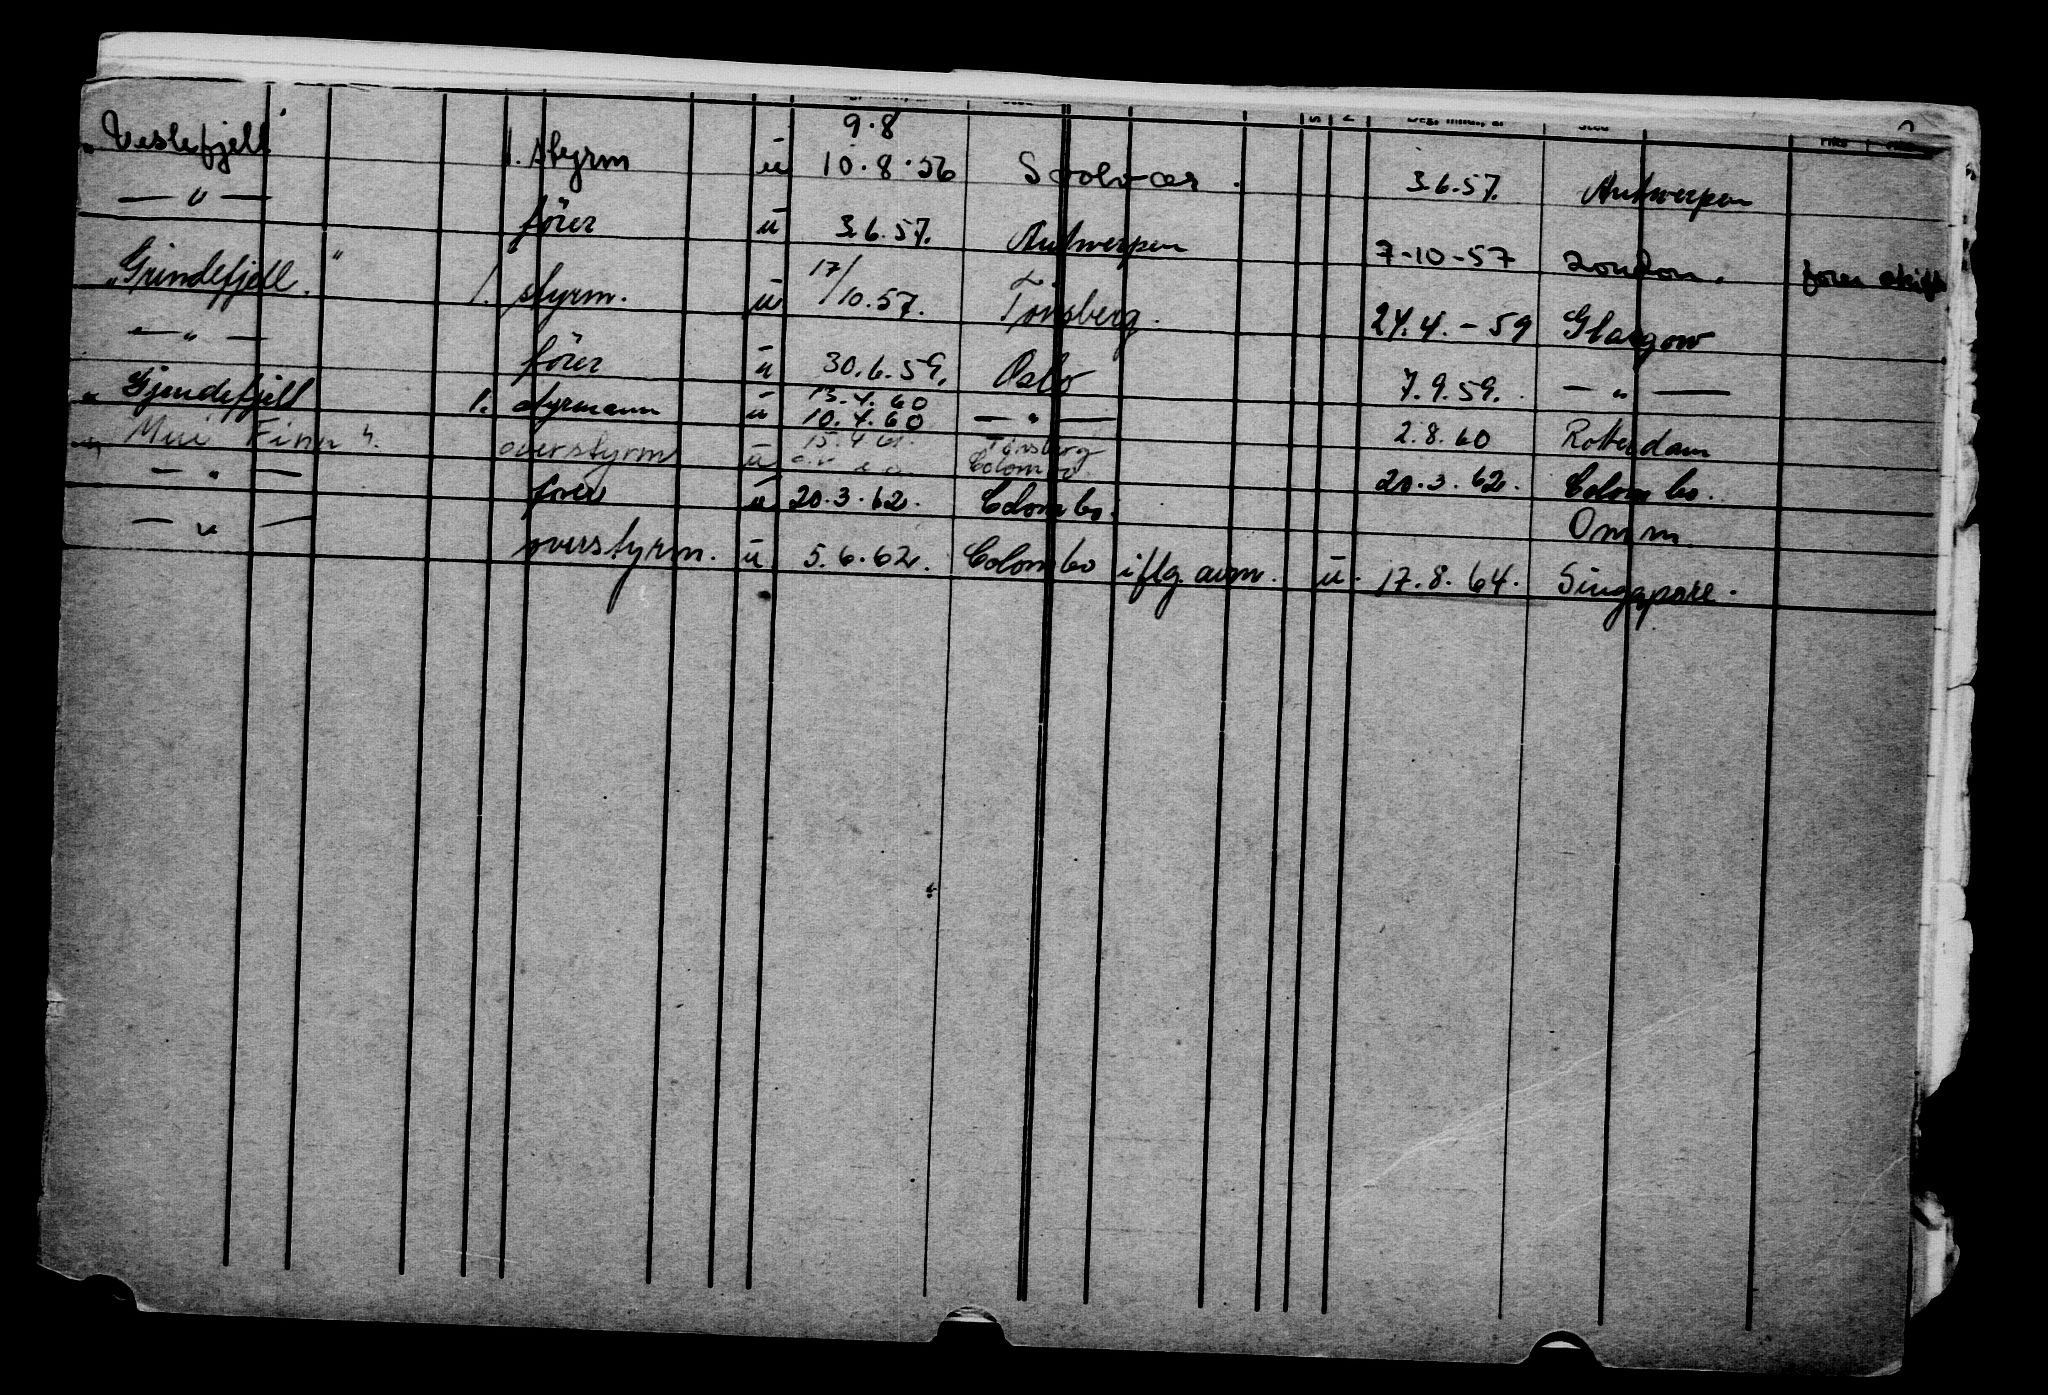 9.8
"Veslefjell" 1. styrm ü 10.8.56 Svolvær. 3.6.57. Antwerpen
— " — förer ü 3.6.57. Antwerpen 7-10-57 London. fører skift
"Grindefjell." 1. styrm. ü 17/10.57. Tönsberg. 24.4.-59 Glasgow
— " — förer ü 30.6.59. Oslo 7.9.59. — " —
13.4.60
" Gjendefjell 1. styrmann ü 10.4.60 — " — 2.8.60 Rotterdam
15.4.61. Tønsberg
" Mui Finn". overstyrm ü Colombo. 20.3.62. Colombo.
— " — fører ü 20.3.62. Colombo. Omm.
— " — overstyrm. ü 5.6.62. Colombo iflg. avm. ü. 17.8.64. Singapore.